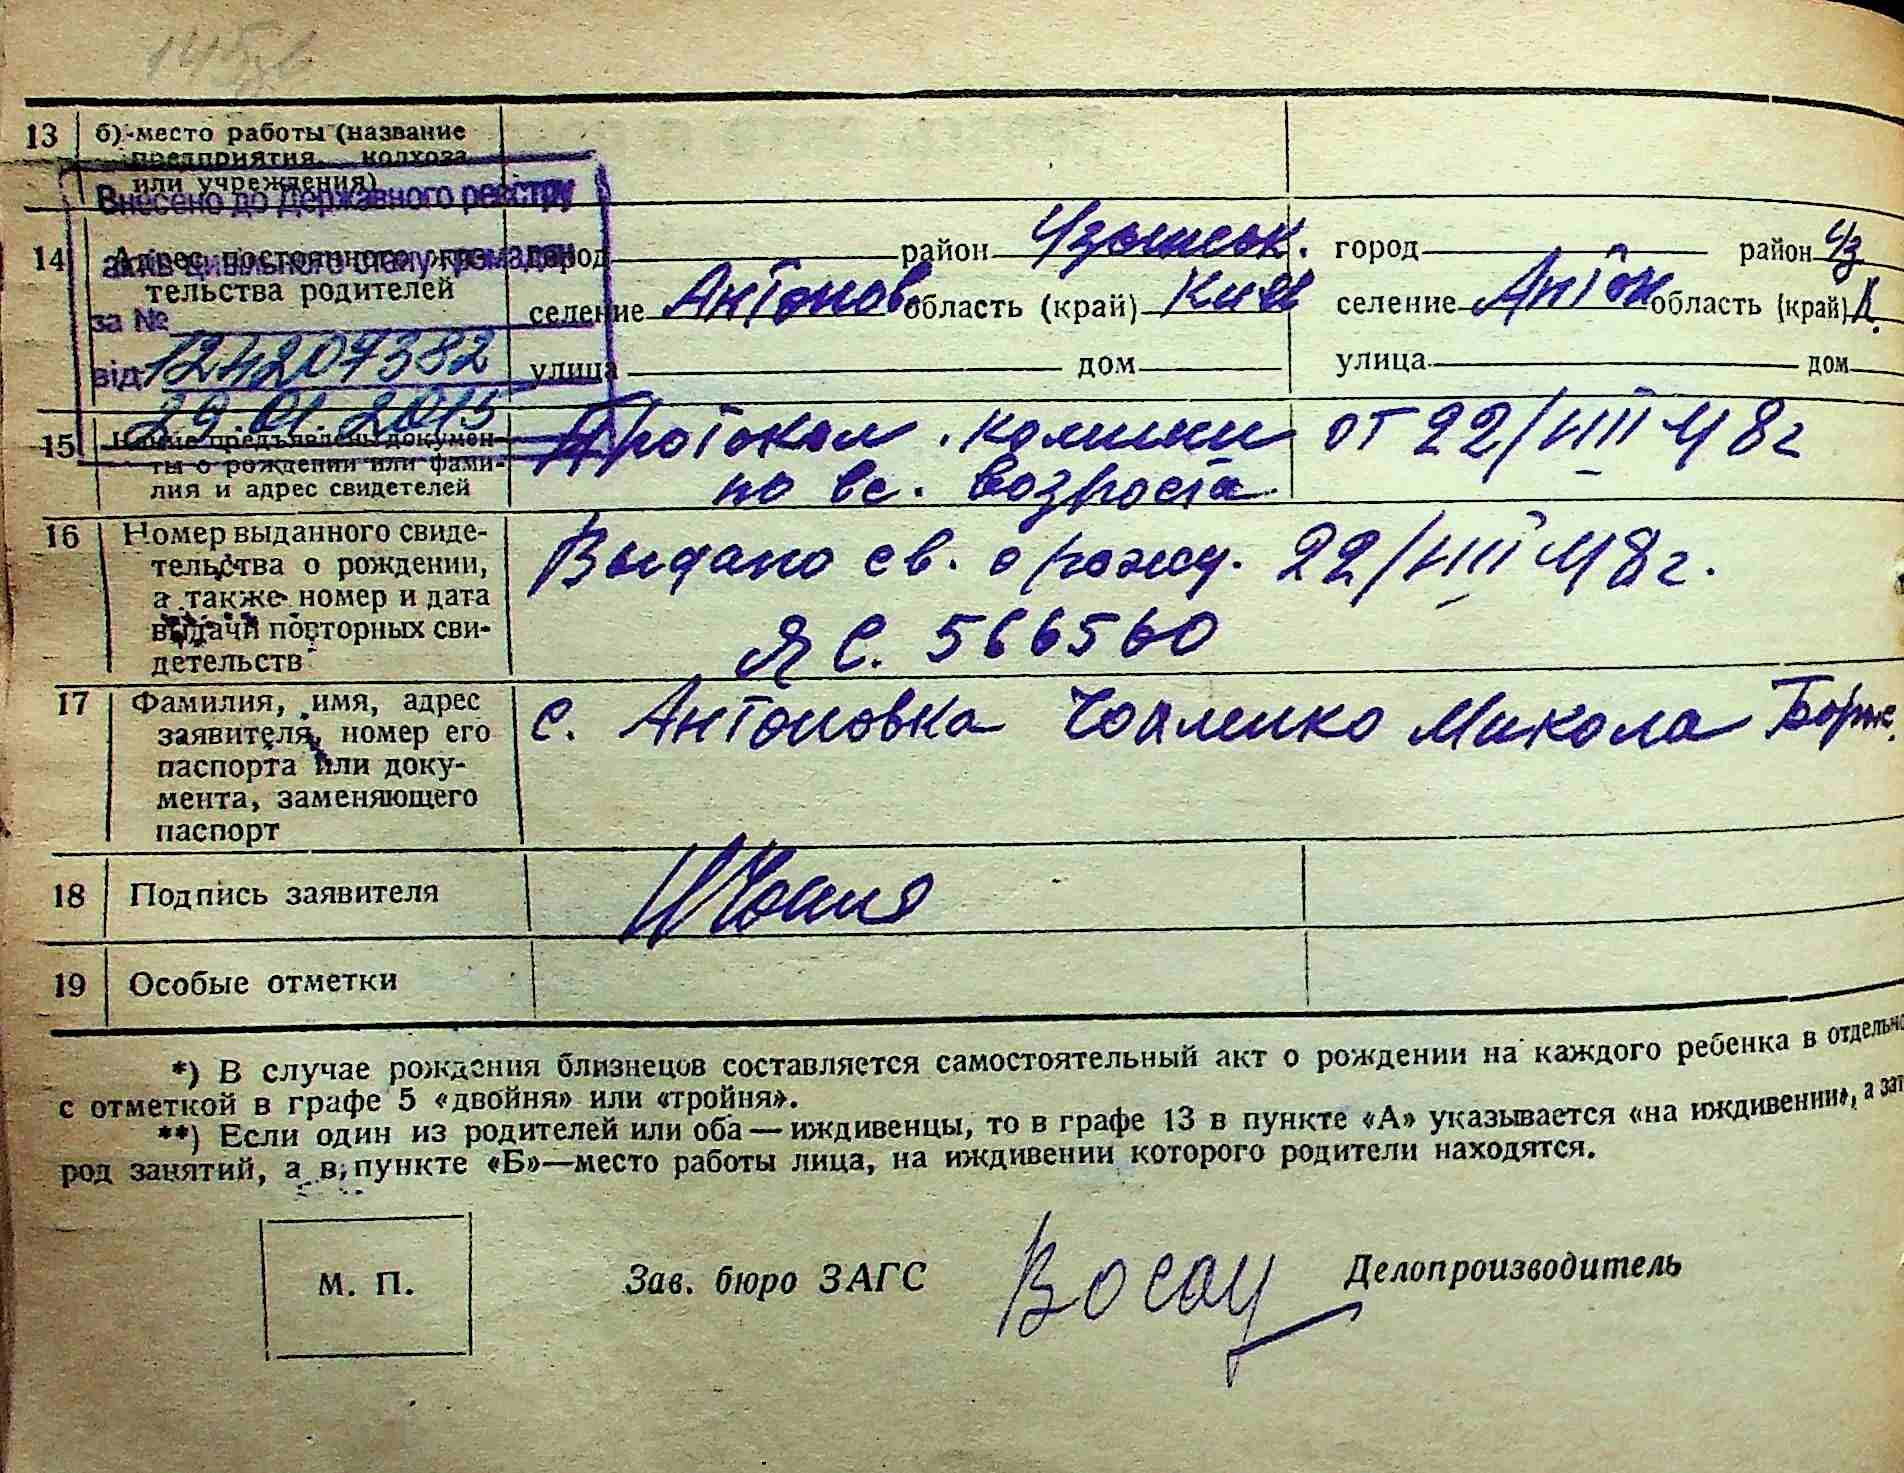 13 б) место работы (название
предприятия, колхоза
или учреждения)
Внесено до Державного реєстру
актів цивільного стану громадян
за №
124207382
від
29.01.2015
14 Адрес постоянного жительства родителей
город район Узинськ. город район Уз
селение Антонов. область (край) Киев селение Антон область (край) К.
улица дом улица дом
15 Какие предъявлены докумен-
ты о рождении или фами-
лия и адрес свидетелей
Протокол . комисии от 22/VIII 48 г
по вс. возроста
16 Номер выданного свиде-
тельства о рождении,
а также номер и дата
выдачи повторных сви-
детельств
Выдано св. о рожд. 22/VIII 48 г.
ЯС. 566560
17 Фамилия, имя, адрес
заявителя, номер его
паспорта или доку-
мента, заменяющего
паспорт
с. Антоновка Микола
18 Подпись заявителя
19 Особые отметки
*) В случае рождения близнецов составляется самостоятельный акт о рождении на каждого ребенка в отдельно
с отметкой в графе 5 «двойня» или «тройня».
**) Если один из родителей или оба — иждивенцы, то в графе 13 в пункте «А» указывается «на иждивении», а зат
род занятий, а в пункте «Б»—место работы лица, на иждивении которого родители находятся.
М. П. Зав. бюро ЗАГС Делопроизводитель